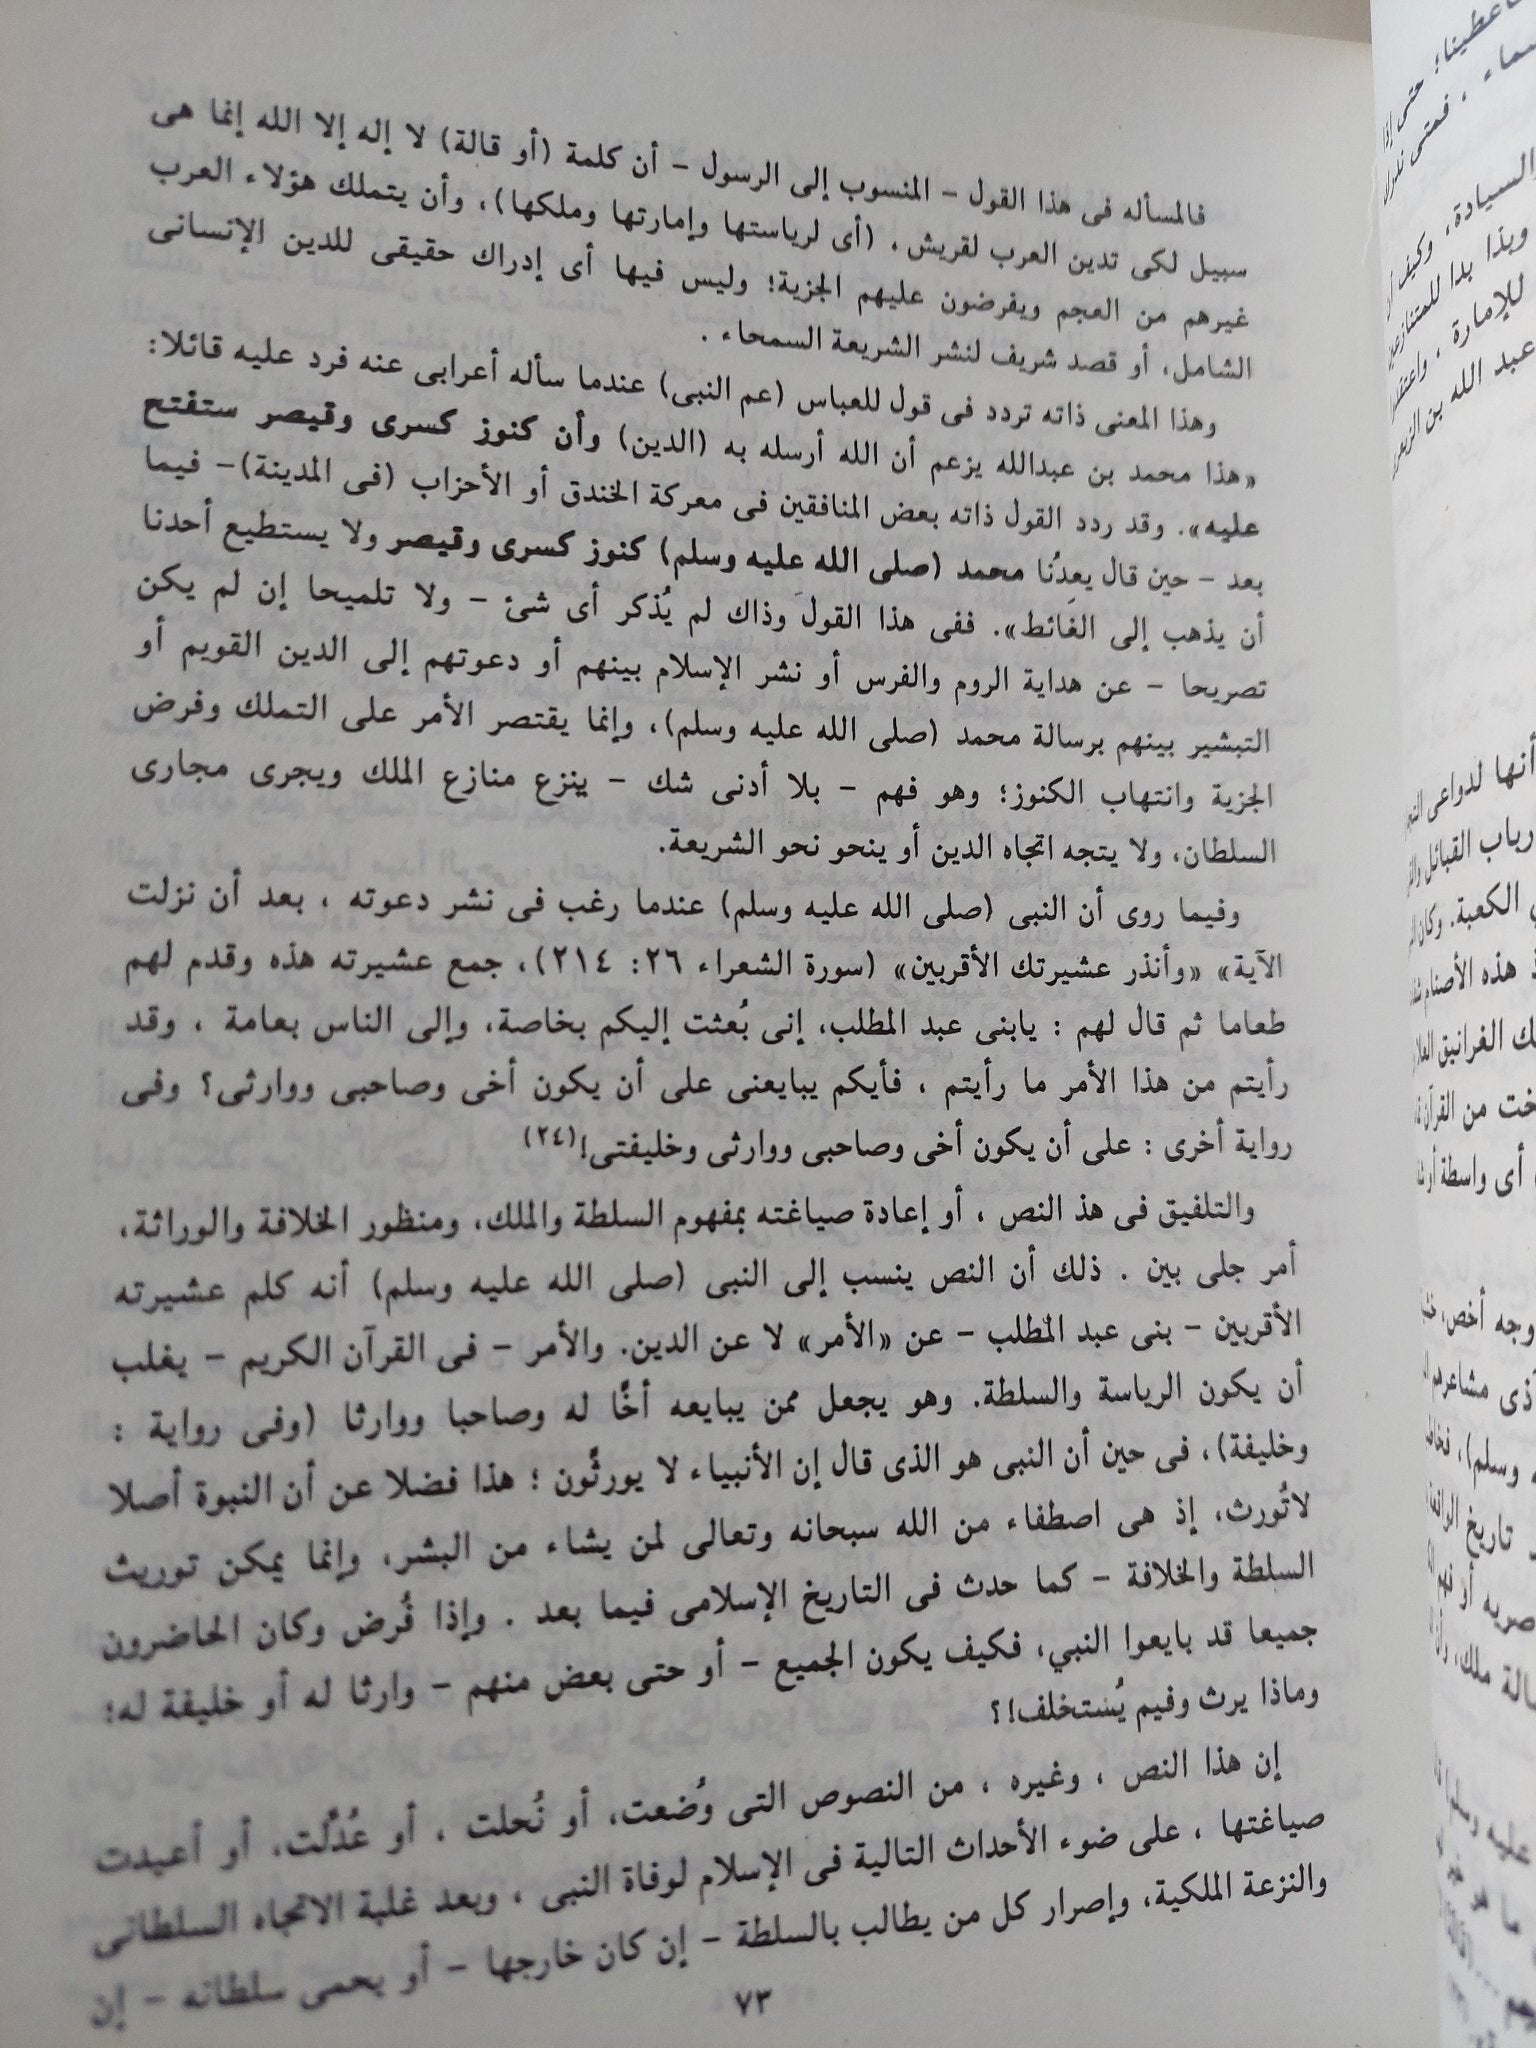 فالمسأله فى هذا القول - المنسوب إلى الرسول - أن كلمة (أو قالة) لا إله إلا الله إنما هى
سبيل لكى تدين العرب لقريش، (أى لرياستها وإمارتها وملكها)، وأن يتملك هؤلاء العرب
غيرهم من العجم ويفرضون عليهم الجزية؛ وليس فيها أى إدراك حقيقى للدين الإنسانى
الشامل، أو قصد شريف لنشر الشريعة السمحاء .
وهذا المعنى ذاته تردد فى قول للعباس (عم النبى) عندما سأله أعرابى عنه فرد عليه قائلا:
«هذا محمد بن عبدالله يزعم أن الله أرسله به (الدين) وأن كنوز كسرى وقيصر ستفتح
عليه». وقد ردد القول ذاته بعض المنافقين فى معركة الخندق أو الأحزاب (فى المدينة)- فيما
بعد - حين قال يعدُنا محمد (صلى الله عليه وسلم) كنوز كسرى وقيصر ولا يستطيع أحدنا
أن يذهب إلى الغائط». ففى هذا القول وذاك لم يُذكر أى شئ - ولا تلميحا إن لم يكن
تصريحا - عن هداية الروم والفرس أو نشر الإسلام بينهم أو دعوتهم إلى الدين القويم أو
التبشير بينهم برسالة محمد (صلى الله عليه وسلم)، وإنما يقتصر الأمر على التملك وفرض
الجزية وانتهاب الكنوز؛ وهو فهم - بلا أدنى شك - ينزع منازع الملك ويجرى مجارى
السلطان، ولا يتجه اتجاه الدين أو ينحو نحو الشريعة.
وفيما روى أن النبى (صلى الله عليه وسلم) عندما رغب فى نشر دعوته ، بعد أن نزلت
الآية» «وأنذر عشيرتك الأقربين» (سورة الشعراء ٢٦: ٢١٤)، جمع عشيرته هذه وقدم لهم
طعاما ثم قال لهم : يابنى عبد المطلب، إنى بُعثت إليكم بخاصة، وإلى الناس بعامة ، وقد
رأيتم من هذا الأمر ما رأيتم ، فأيكم يبايعنى على أن يكون أخى وصاحبى ووارثى؟ وفى
رواية أخرى : على أن يكون أخى وصاحبى ووارثى وخليفتى!(٢٤)
والتلفيق فى هذ النص ، أو إعادة صياغته بمفهوم السلطة والملك، ومنظور الخلافة والوراثة،
أمر جلى بين . ذلك أن النص ينسب إلى النبى (صلى الله عليه وسلم) أنه كلم عشيرته
الأقربين - بنى عبد المطلب - عن «الأمر» لا عن الدين. والأمر - فى القرآن الكريم - يغلب
أن يكون الرياسة والسلطة. وهو يجعل ممن يبايعه أخًا له وصاحبا ووارثا (وفى رواية :
وخليفة)، فى حين أن النبى هو الذى قال إن الأنبياء لا يورثَّون ؛ هذا فضلا عن أن النبوة أصلا
لاتُورث، إذ هى اصطفاء من الله سبحانه وتعالى لمن يشاء من البشر، وإنما يمكن توريث
السلطة والخلافة - كما حدث فى التاريخ الإسلامى فيما بعد . وإذا فُرض وكان الحاضرون
جميعا قد بايعوا النبي، فكيف يكون الجميع - أو حتى بعض منهم - وارثا له أو خليفة له؛
وماذا يرث وفيم يُستخلف!؟
إن هذا النص ، وغيره ، من النصوص التى وُضعت، أو نُحلت ، أو عُدِّلت، أو أعيدت
صياغتها ، على ضوء الأحداث التالية فى الإسلام لوفاة النبى ، وبعد غلبة الاتجاه السلطانى
والنزعة الملكية، وإصرار كل من يطالب بالسلطة - إن كان خارجها - أو يحمى سلطانه - إن
٧٣
حتى إذا
السيادة، وكيف
وبذا بدا
للإمارة ،
عبد الله بن
أنها لدواعى
الكعبة. وكان
هذه الأصنام
الغرانيق
من القرآن
أى واسطة أو
وجه أخص،
مشاعرهم
وسلم)،
تاريخ
ملك،
عليه